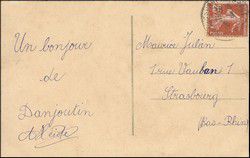 Un bonjour
de
Danjoutin
Maurice Julien
1 rue Vauban 1
Strasbourg
(Bas-Rhin)